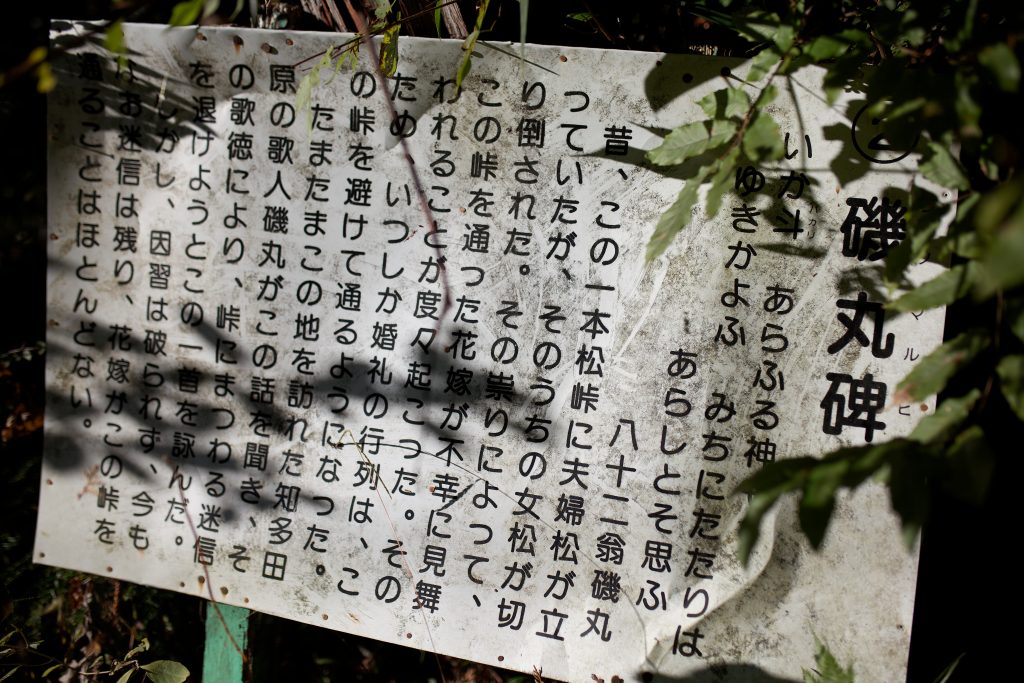 ② 磯丸碑
マルヒ
いか斗 あらふる神
ゆきかよふ みちにたたりは
あらしとそ思ふ
八十二翁磯丸
昔、この一本松峠に夫婦松が立
っていたが、そのうちの女松が切
り倒された。その祟りによって、
この峠を通った花嫁が不幸に見舞
われることが度々起こった。その
ため いつしか婚礼の行列は、こ
の峠を避けて通るようになった。
たまたまこの地を訪れた知多田
原の歌人磯丸がこの話を聞き、そ
の歌徳により、峠にまつわる迷信
を退けようとこの一首を詠んだ。
しかし、因習は破られず、今も
なお迷信は残り、花嫁がこの峠を
通ることはほとんどない。